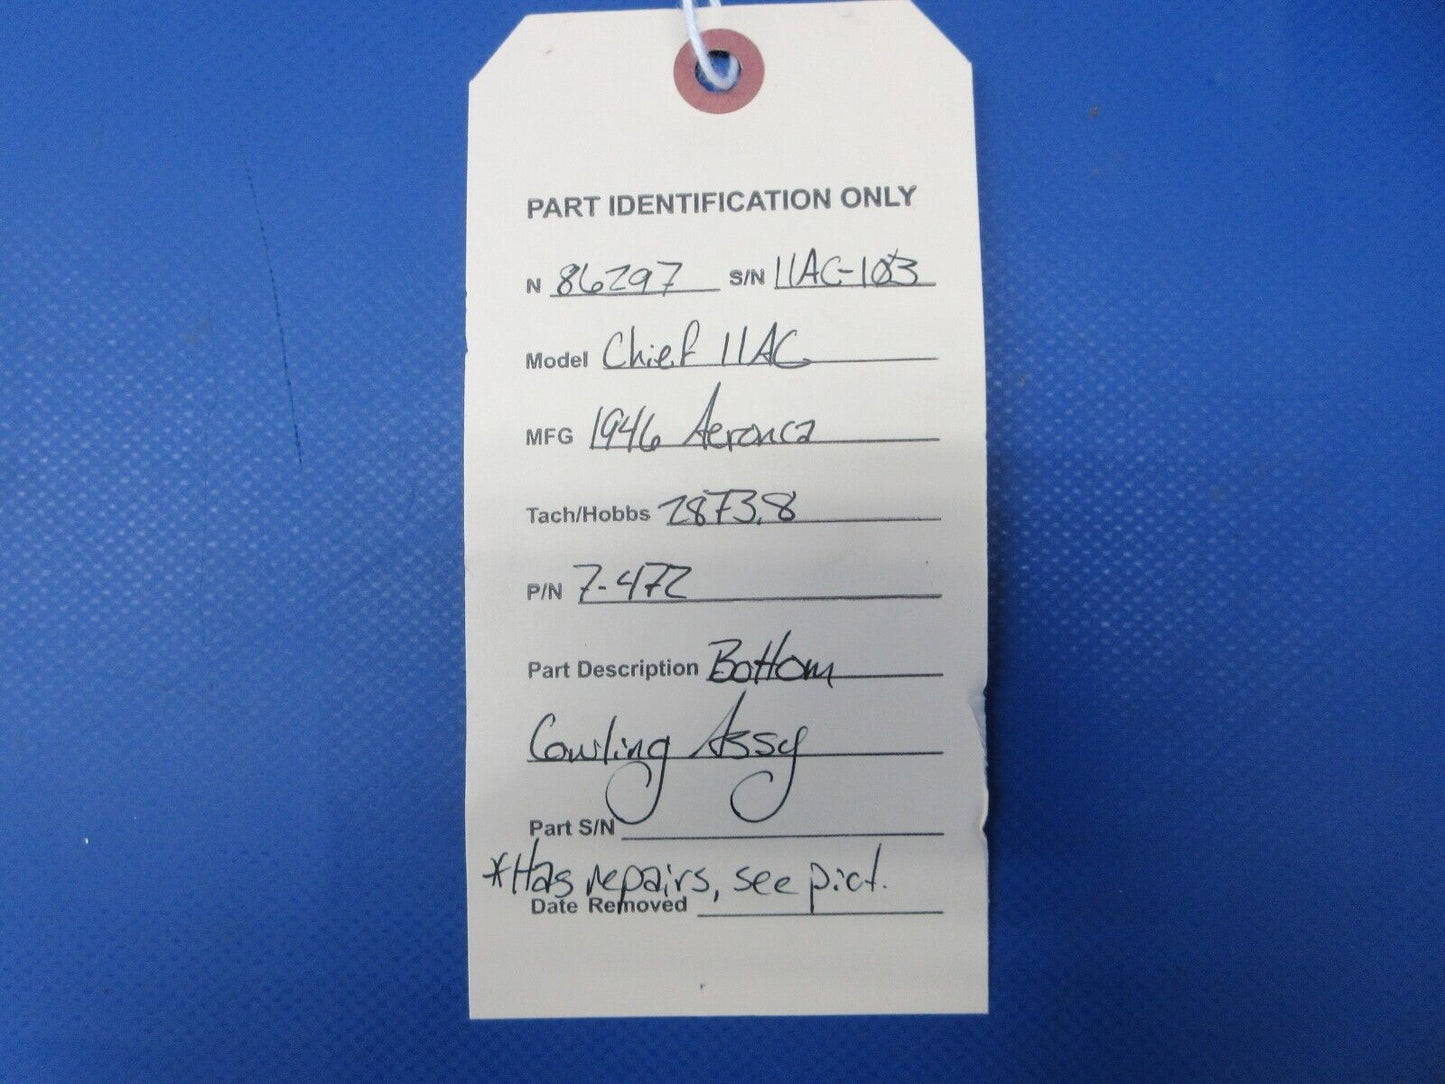 PART IDENTIFICATION ONLY
N 86297 S/N 11AC-103
Model Chief 11AC
MFG 1946 Aeronca
Tach/Hobbs 2873.8
P/N 7-472
Part Description Bottom
Cowling Assy
Part S/N
*Has repairs, see pict.
Date Removed